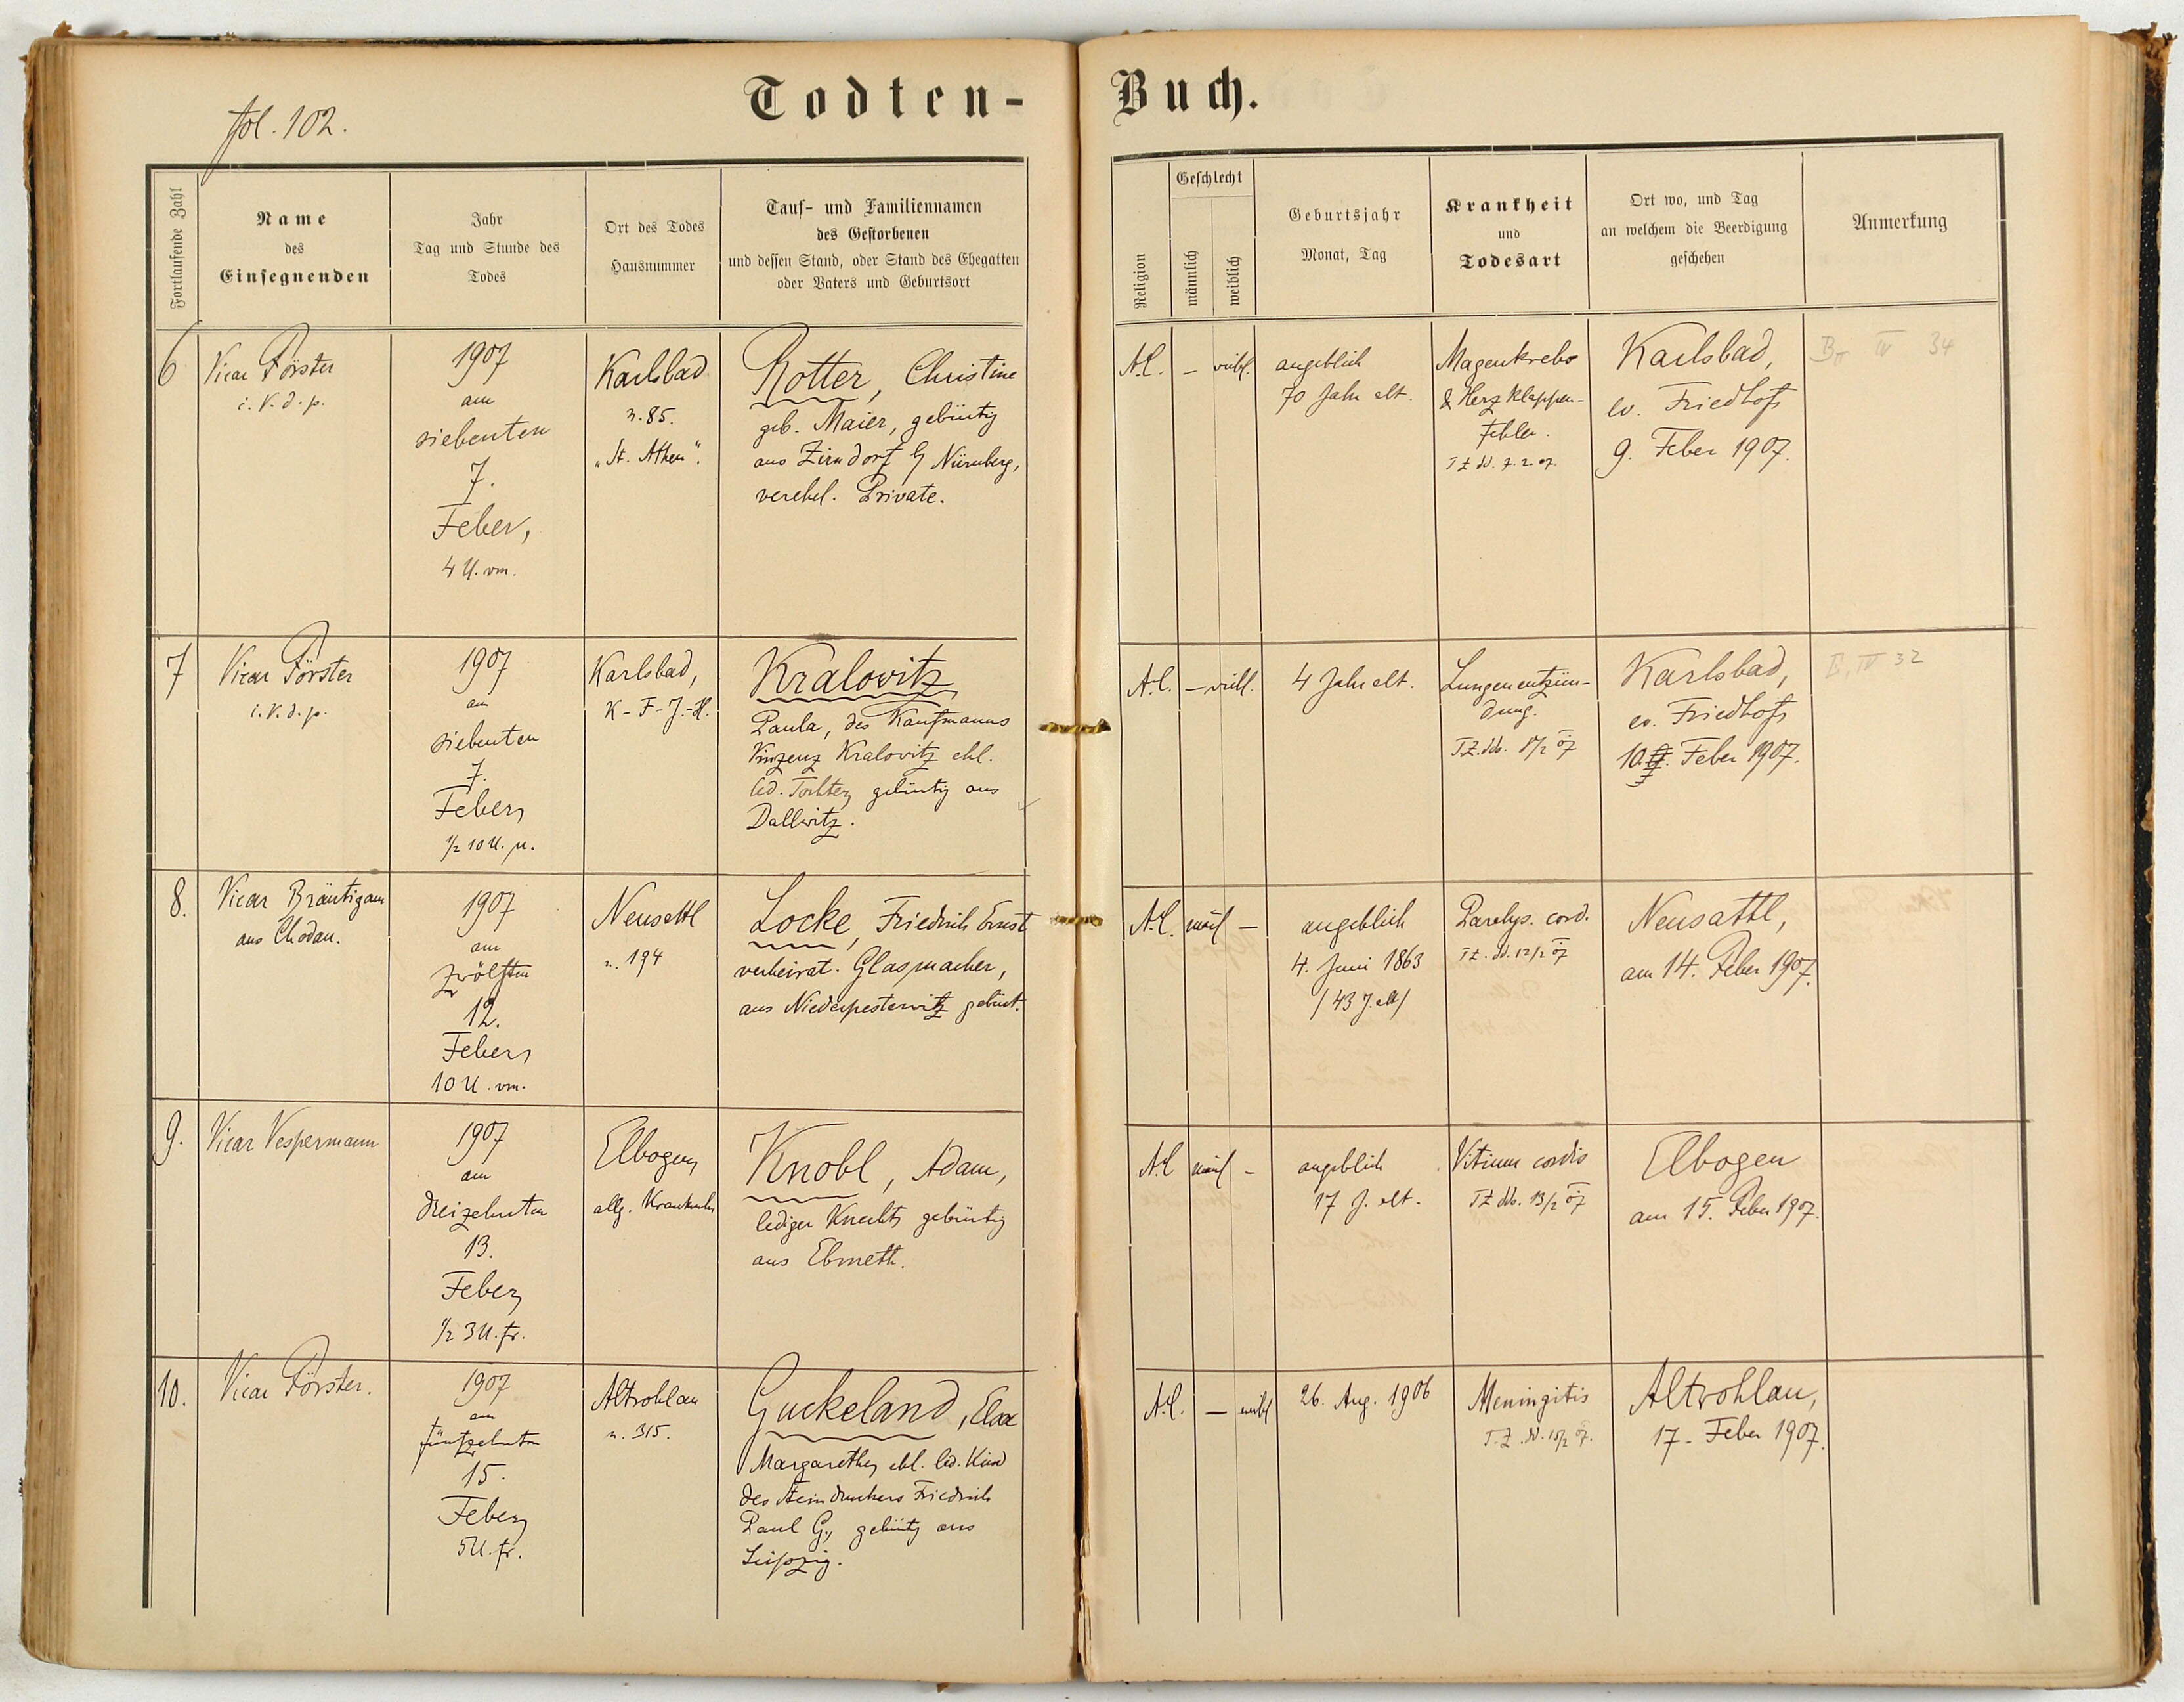 fol. 102.
Todten-Buch.
Fortlaufende Zahl
Name
des
Einsegnenden
Jahr
Tag und Stunde des
Todes
Ort des Todes
Hausnummer
Tauf- und Familiennamen
des Gestorbenen
und dessen Stand, oder Stand des Ehegatten
oder Vaters und Geburtsort
Religion
Geschlecht
männlich
weiblich
Geburtsjahr
Monat, Tag
Krankheit
und
Todesart
Ort wo, und Tag
an welchem die Beerdigung
geschehen
Anmerkung
6
Vicar Förster
i. V. d. p.
1907
am
siebenten
7.
Feber,
4 U. vm.
Karlsbad
n. 85.
"St. Athen".
Rotter, Christine
geb. Maier, gebürtig
aus Zirndorf b/ Nürnberg,
verehel. Private.
A.C.
—
weibl.
angeblich
70 Jahr alt.
Magenkrebs
& Herzklappen-
Fehler.
TZ dd. 7. 2 07.
Karlsbad,
ev. Friedhof,
9. Feber 1907.
IV 34
7
Vicar Förster
i. V. d. p.
1907
am
siebenten
7.
Feber,
1/2 10 U. n.
Karlsbad,
K-F-J.-H.
Kralovitz
Paula, des Kaufmanns
Vinzenz Kralovitz ehl.
led. Tochter, gebürtig aus
Dallwitz.
A.C.
— weibl.
4 Jahr alt.
Lungenentzün-
dung.
T.Z. dd. 8/2 07
Karlsbad,
ev. Friedhof,
10. Feber 1907.
IV 32
8.
Vicar Bräutigam
aus Chodau.
1907
am
zwölften
12.
Feber,
10 U. vm.
Neusattl
n. 194
Locke, Friedrich Ernst
verheirat. Glasmacher,
aus Niederpesterwitz gebürt.
A.C.
männl —
angeblich
4. Juni 1863
/43 J. alt/
Paralys. cord.
TZ. dd. 12/2 07
Neusattl,
am 14. Feber 1907.
9.
Vicar Vespermann
1907
am
dreizehnten
13.
Feber,
1/2 3 U. fr.
Elbogen,
allg. Krankenhs
Knobl, Adam,
lediger Knecht, gebürtig
aus Ebmeth.
A.C
männl —
angeblich
17 J. alt.
Vitium cordis
TZ dd. 13/2 07
Elbogen
am 15. Feber 1907.
10.
Vicar Förster.
1907
am
fünfzehnten
15.
Feber,
5 U. fr.
Altrohlau
n. 315.
Guckeland, Elsa
Margarethe, ehl. led. Kind
des Steindruckers Friedrich
Paul G., gebürtig aus
Leipzig.
A.C.
— weibl
26. Aug. 1906
Meningitis
T.Z. dd. 15/2 07.
Altrohlau,
17. Feber 1907.